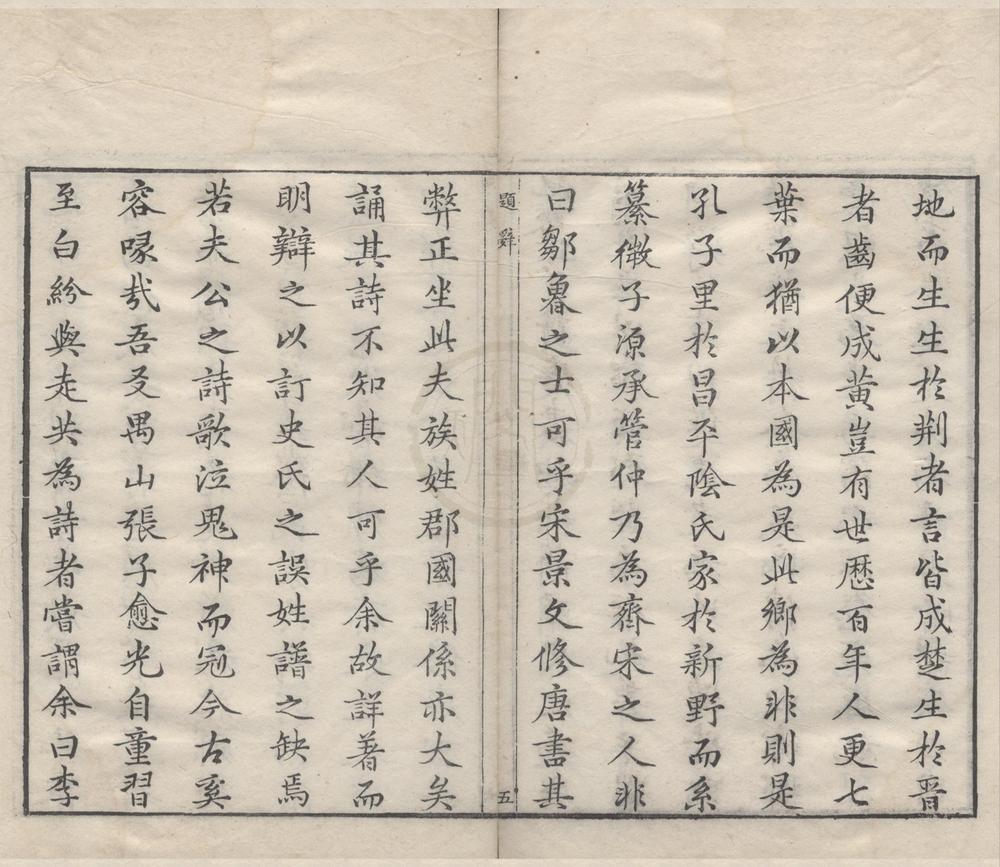 地而生生於荆者言皆成楚生於晉
者齒便成黃豈有世歷百年人更七
葉而猶以本國為是此鄉為非則是
孔子里於昌平陰氏家於新野而系
纂微子源承管仲乃為齊宋之人非
曰鄒魯之士可乎宋景文修唐書其
題辭
五
弊正坐此夫族姓郡國關係亦大矣
誦其詩不知其人可乎余故詳著而
明辯之以訂史氏之誤姓譜之缺焉
若夫公之詩歌泣鬼神而冠今古奚
容喙哉吾友禺山張子愈光自童習
至白紛與走共為詩者嘗謂余曰李